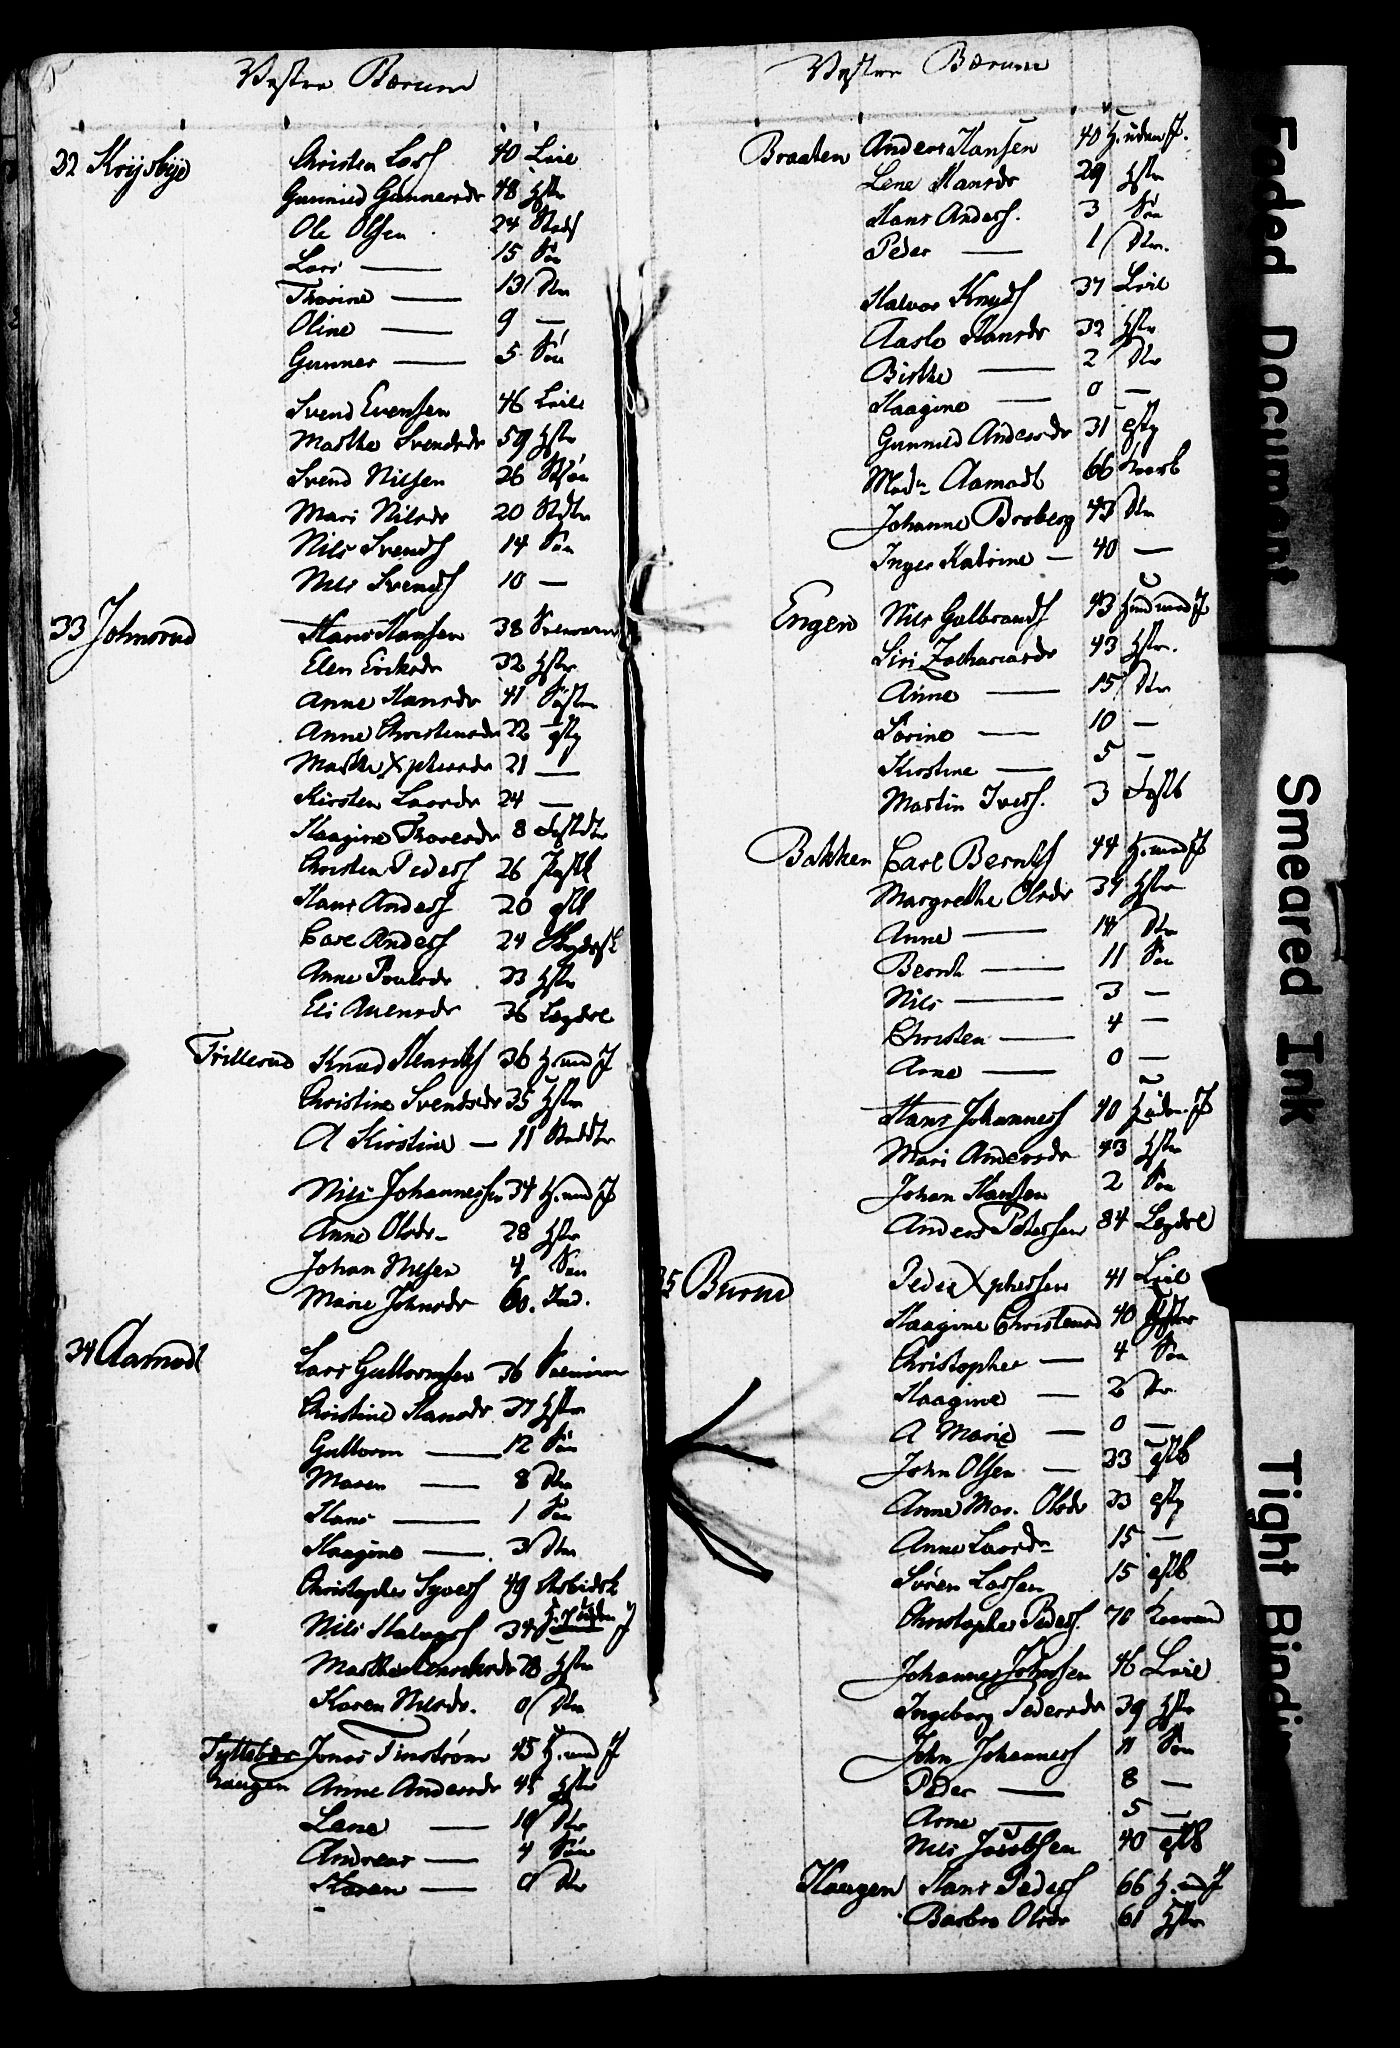 Vestre Bærum
32 Krijsbye Christen Lars 40 Leil
Gunnild Gunnersdr 48 Hstr
Ole Olsen 24 Steds
Lars — 15 Sön
Thorine — 13 Dtr
Oline — 9 —
Gunner — 5 Sön
Svend Evensen 46 Leil
Marthe Svendsdr 59 Hstr
Svend Nilsen 26 Stsön
Mari Nilsdr 20 Stdtr
Nils Svends 14 Sön
Nils Svends 10 —
33 Johnsrud Hans Hansen 38
Elen Eriksdr 32 Hstr
Anne Hansdr 41 Söster
Anne Christensdr 22 tstp
Marthe Xphersdr 21 —
Kirsten Larsdr 24 —
Haagine Thoresdr 8
Christen Peders 26
Hans Anders 20 tstk
Carl Anders 24
Anne Poulsdr 23 Hstr
Eli Arensdr 36 Lægdsl
Trillerud Knud Henriks 36 H. med J
Christine Svendsdr 35 Hstr
A Kirstine — 11 Steddtr
Nils Johannessen 34 H. med J
Anne Olsdr 28 Hstr
Johan Nilsen 4 Sön
Marie Johnsdr 60. Ind.
34 Aamodt Lars Guttormsen 36
Christine Hansdr 37 Hstr
Guttorm — 12 Sön
Maren — 8 Dtr
Hans — 1 Sön
Haagine — 3 Dtr
Christopher Syvers 49 Arbidsk
Nils Halvors 34 H. uden J
Marthe 28 Hstr
Karen Nilsdr. 0 Dtr
Tyttebær Jonas Finström 45 H. med J
haugen Anne Andersdr 45 Hstr
Lene — 10 Dtr
Andreas — 4 Sön
Karen — 0 Dtr
Vestre Bærum
Braaten Anders Hansen 40 H. uden J.
Lene Hansdr 29 Hstr
Hans Anders. 3 Sön
Peder — 1 Dtr.
Halvor Knuds 37 Leil
Aaslo Hansdr 32 Hstr
Birthe — 2 Dtr
Haagine — 0 —
Gunnild Andersdr 31 tstp
Mad. Aamodt 66
Johanne Broberg 43 Dtr
Inger Katrine — 40 —
Engen Nils Gulbrands 43 Hmd med J
Siri Zachariasdr 43 Hstr.
Anne — 15 Dtr
Sörine — 10 —
Kirstine — 5 —
Martin Ivers. 3
Bakken Carl Bernts 44 H. med J
Margrethe Olsdr 37 Hstr
Anne — 14 Dtr
Bernt — 11 Sön
Nils — 3 —
Christen — 4 —
Arne — 0 —
Hans Johannes 40 H. uden J
Mari Andersdr 43 Hstr
Johan Hansen 2 Sön
Anders Petersen 84 Lægdsl
35 Burud Peder Xphersen 41 Leil
Haagine Christensd 40 Hstr
Christopher — 4 Sön
Haagine — 2 Dtr.
A Marie — 0 —
John Olsen — 23 tstk
Anne Mar. Olsdr 33 tstp
Anne Larsdr 15 —
Sören Larsen 15 tstk
Christopher Peders. 76
Johannes Johnsen 46 Leil
Ingeborg Pedersdr 39 Hstr
John Johannes 11 Sön
Peder — 8 —
Arne — 5 —
Nils Jacobsen 40 tstk
Haugen Hans Peders 66 H. med J
Barbro Olsdr 61 Hstr
Faded Document
Smeared Ink
Tight Bindin